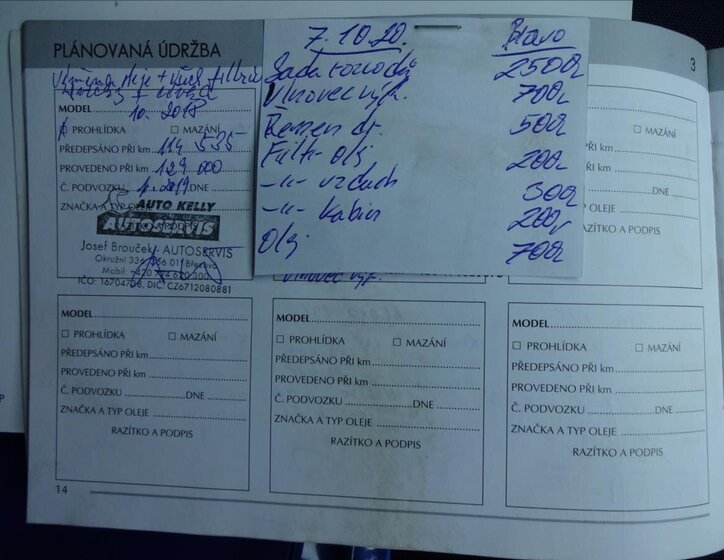 PLÁNOVANÁ ÚDRŽBA
3
Výměna oleje + všech filtrů
MODEL 10. 2018
PROHLÍDKA MAZÁNÍ
PŘEDEPSÁNO PŘI km 114 535
PROVEDENO PŘI km 129 000
Č. PODVOZKU 2019 DNE
ZNAČKA A TYP OLEJE
AUTO KELLY
AUTOSERVIS
Josef Brouček - AUTOSERVIS
Okružní 336, 356 01 Březová
Mobil: +420
IČO: 16704708, DIČ: CZ6712080881
7.10.20. Bravo
Sada rozvodů 2500,-
Vlnovec výf. 700,-
Řemen dr. 500,-
Filtr olej 200,-
-"- vzduch 300,-
-"- kabin 200,-
Olej 700,-
vlnovec výf.
MAZÁNÍ
DNE
OLEJE
RAZÍTKO A PODPIS
MODEL
PROHLÍDKA MAZÁNÍ
PŘEDEPSÁNO PŘI km
PROVEDENO PŘI km
Č. PODVOZKU DNE
ZNAČKA A TYP OLEJE
RAZÍTKO A PODPIS
MODEL
PROHLÍDKA MAZÁNÍ
PŘEDEPSÁNO PŘI km
PROVEDENO PŘI km
Č. PODVOZKU DNE
ZNAČKA A TYP OLEJE
RAZÍTKO A PODPIS
MODEL
PROHLÍDKA MAZÁNÍ
PŘEDEPSÁNO PŘI km
PROVEDENO PŘI km
Č. PODVOZKU DNE
ZNAČKA A TYP OLEJE
RAZÍTKO A PODPIS
14